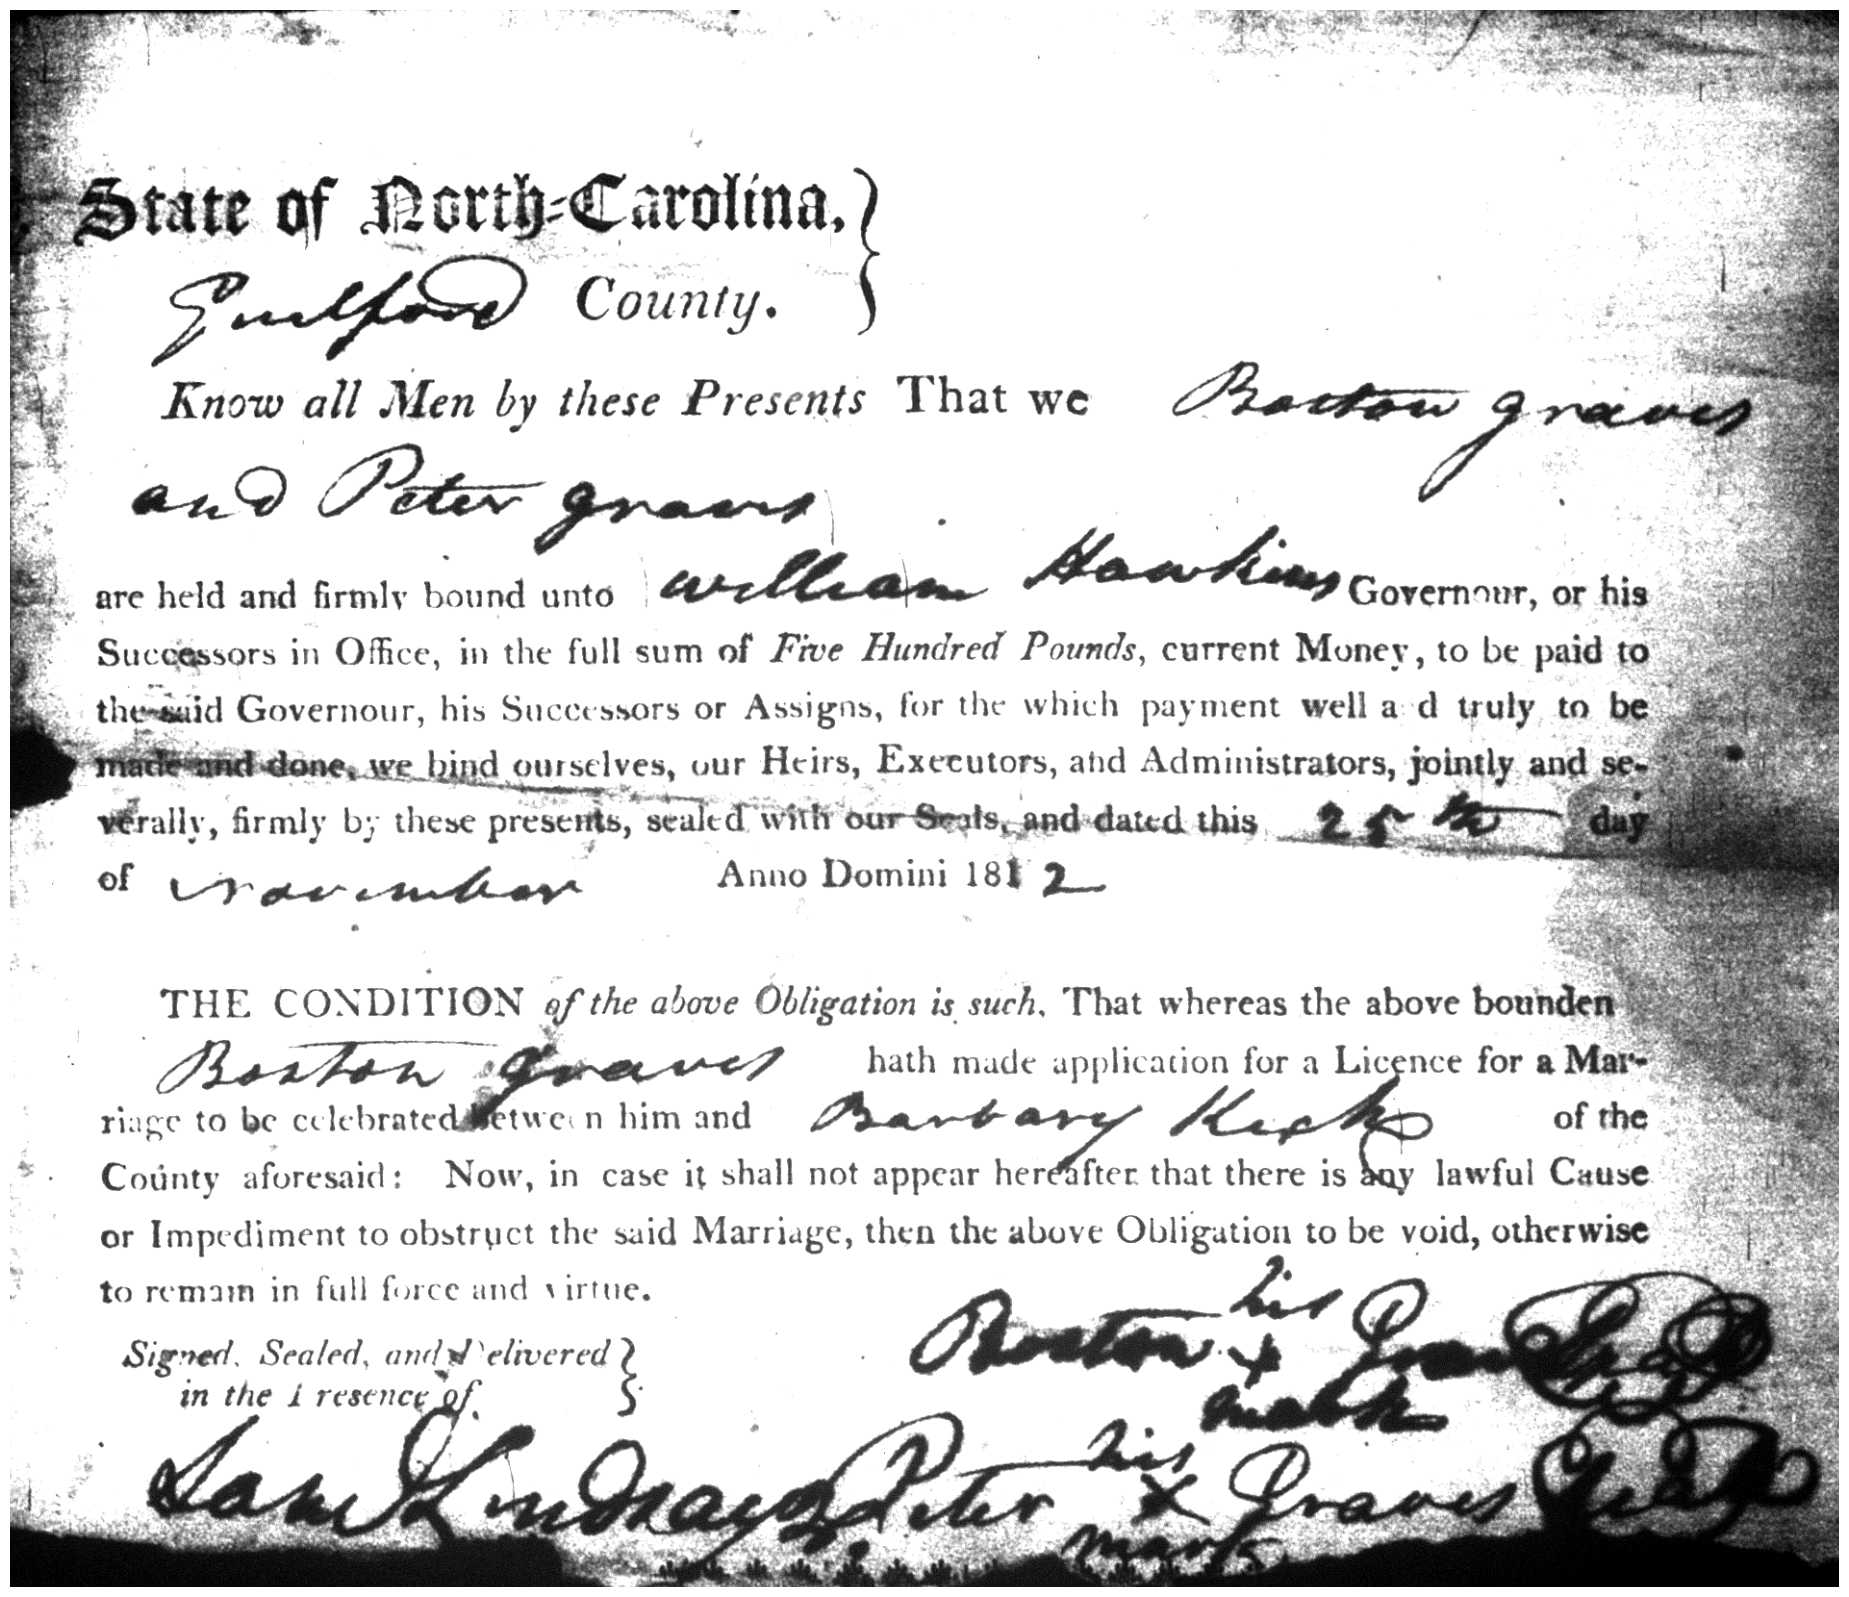 State of North-Carolina,
Guilford County.
Know all Men by these Presents That we Boston graves
and Peter graves
are held and firmly bound unto william Hawkins Governour, or his
Successors in Office, in the full sum of Five Hundred Pounds, current Money, to be paid to
the said Governour, his Successors or Assigns, for the which payment well a d truly to be
made and done, we bind ourselves, our Heirs, Executors, and Administrators, jointly and se-
verally, firmly by these presents, sealed with our Seals, and dated this 25th day
of november Anno Domini 1812
THE CONDITION of the above Obligation is such, That whereas the above bounden
Boston graves hath made application for a Licence for a Mar-
riage to be celebrated between him and Barbary Kick of the
County aforesaid: Now, in case it shall not appear hereafter that there is any lawful Cause
or Impediment to obstruct the said Marriage, then the above Obligation to be void, otherwise
to remain in full force and virtue.
his
Signed, Sealed, and Delivered Boston x Graves Seal
in the Presence of mark
his
Sam Lindsay Peter x Graves Seal
mark